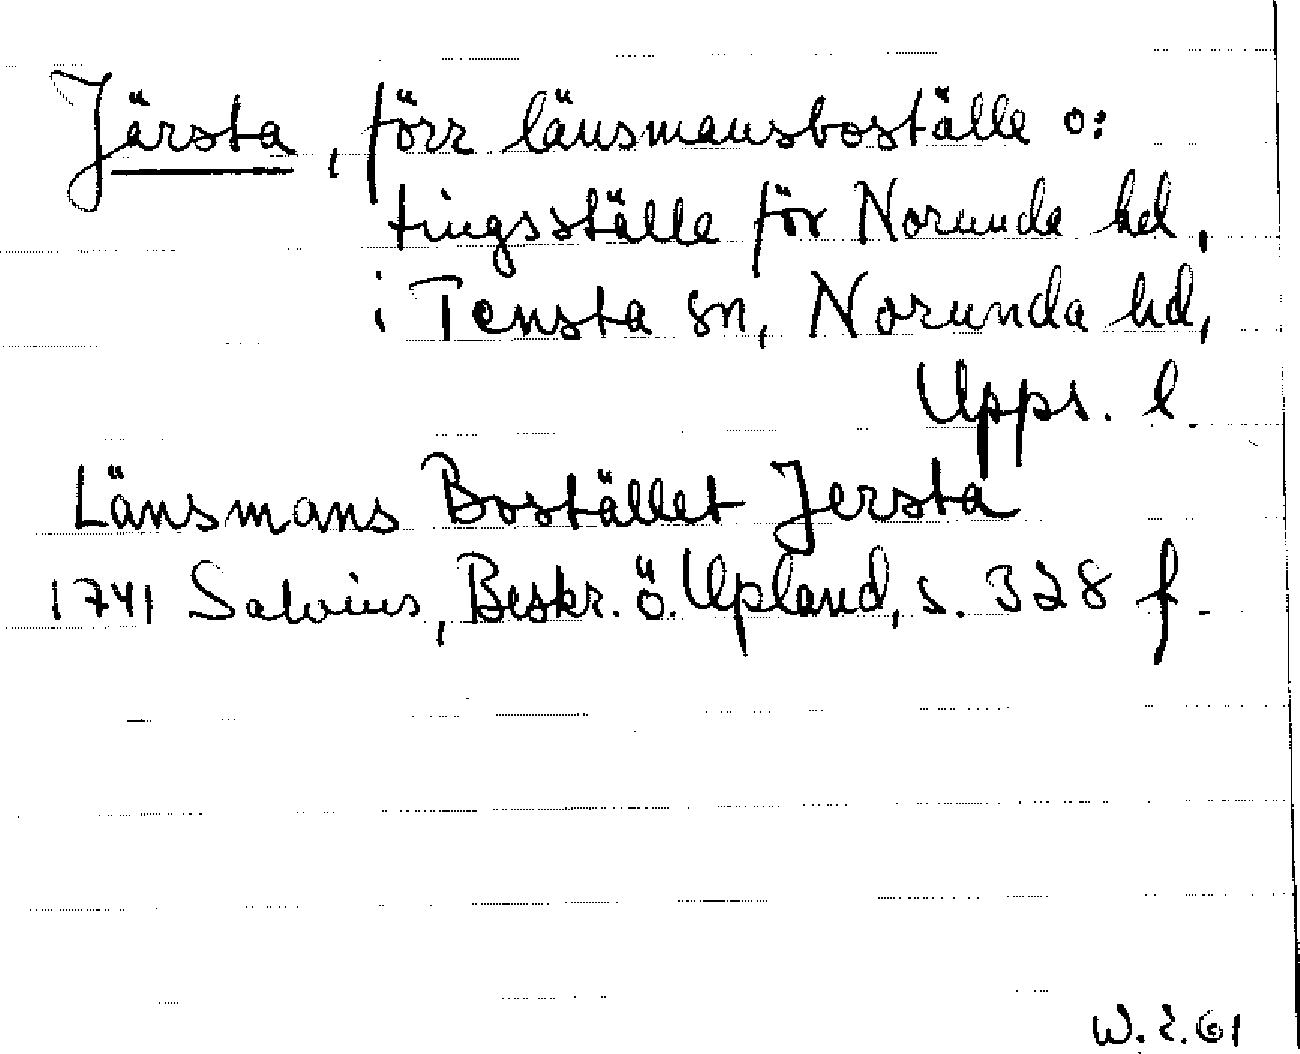 Järsta, förr länsmansboställe o:
tingsställe för Norunda hd,
i Tensta sn, Norunda hd,
Upps. l.
Länsmans Bostället Jersta
1741 Salvius, Beskr. ö. Upland, s. 328 f.
W. Z. 61